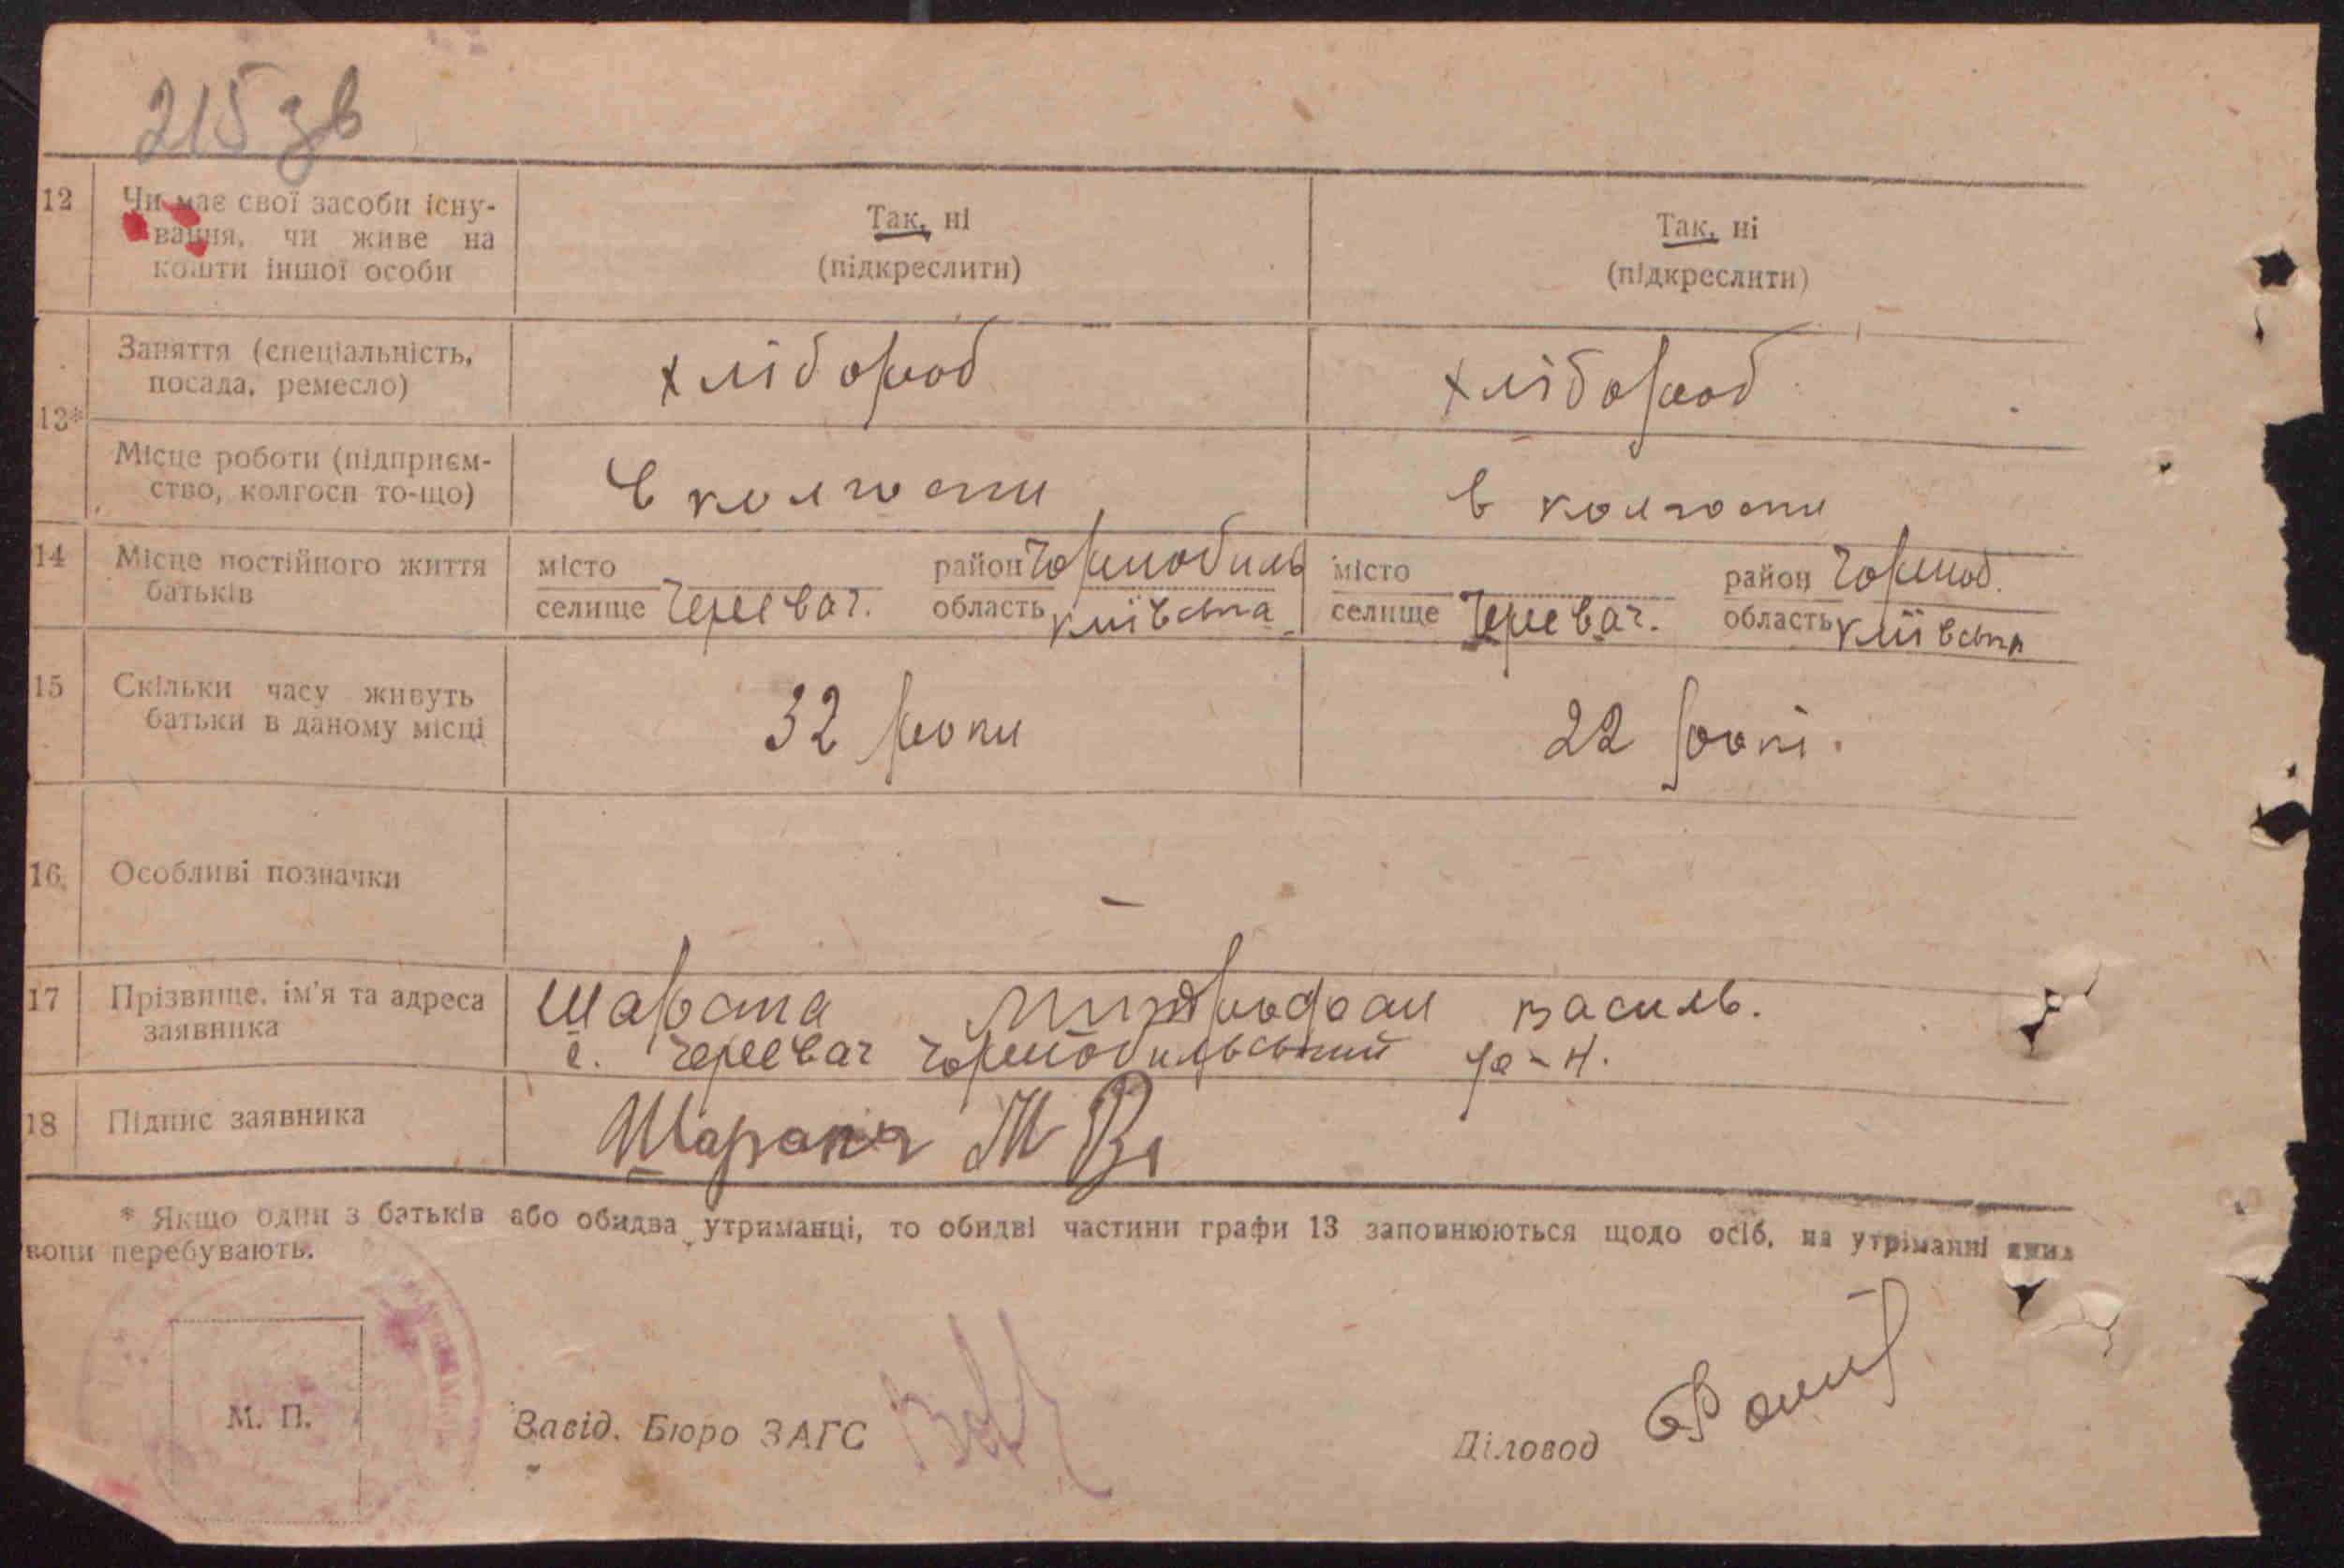 215 зв
12 Чи має свої засоби існу-
вання, чи живе на
кошти іншої особи
Так, ні
(підкреслити)
Так, ні
(підкреслити)
13*
Заняття (спеціальність,
посада, ремесло)
хлібороб
хлібороб
Місце роботи (підприєм-
ство, колгосп то-що)
в колгоспи
в колгоспи
14 Місце постійного життя
батьків
місто
селище Черевач.
район Чорнобиль
область київська
місто
селище Черевач.
район Чорноб.
область київська
15 Скільки часу живуть
батьки в даному місці
32 роки
22 рокі.
16 Особливі позначки
–
17 Прізвище, ім'я та адреса
заявника
Шарапа Митрофан василь.
с. Черевач Чорнобильський ра-н.
18 Підпис заявника
Шарапа М В
* Якщо один з батьків або обидва утриманці, то обидві частини графи 13 заповнюються щодо осіб, на утріманні яких
вони перебувають.
М. П.
Завід. Бюро ЗАГС
Діловод